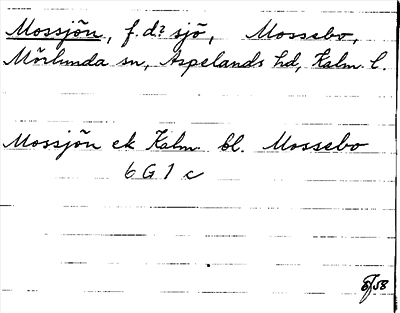 Mossjön, f.d.? sjö, Mossebo,
Mörlunda sn, Aspelands hd, Kalm. l.
Mossjön ek Kalm bl. Mossebo
6 G 1 c
58